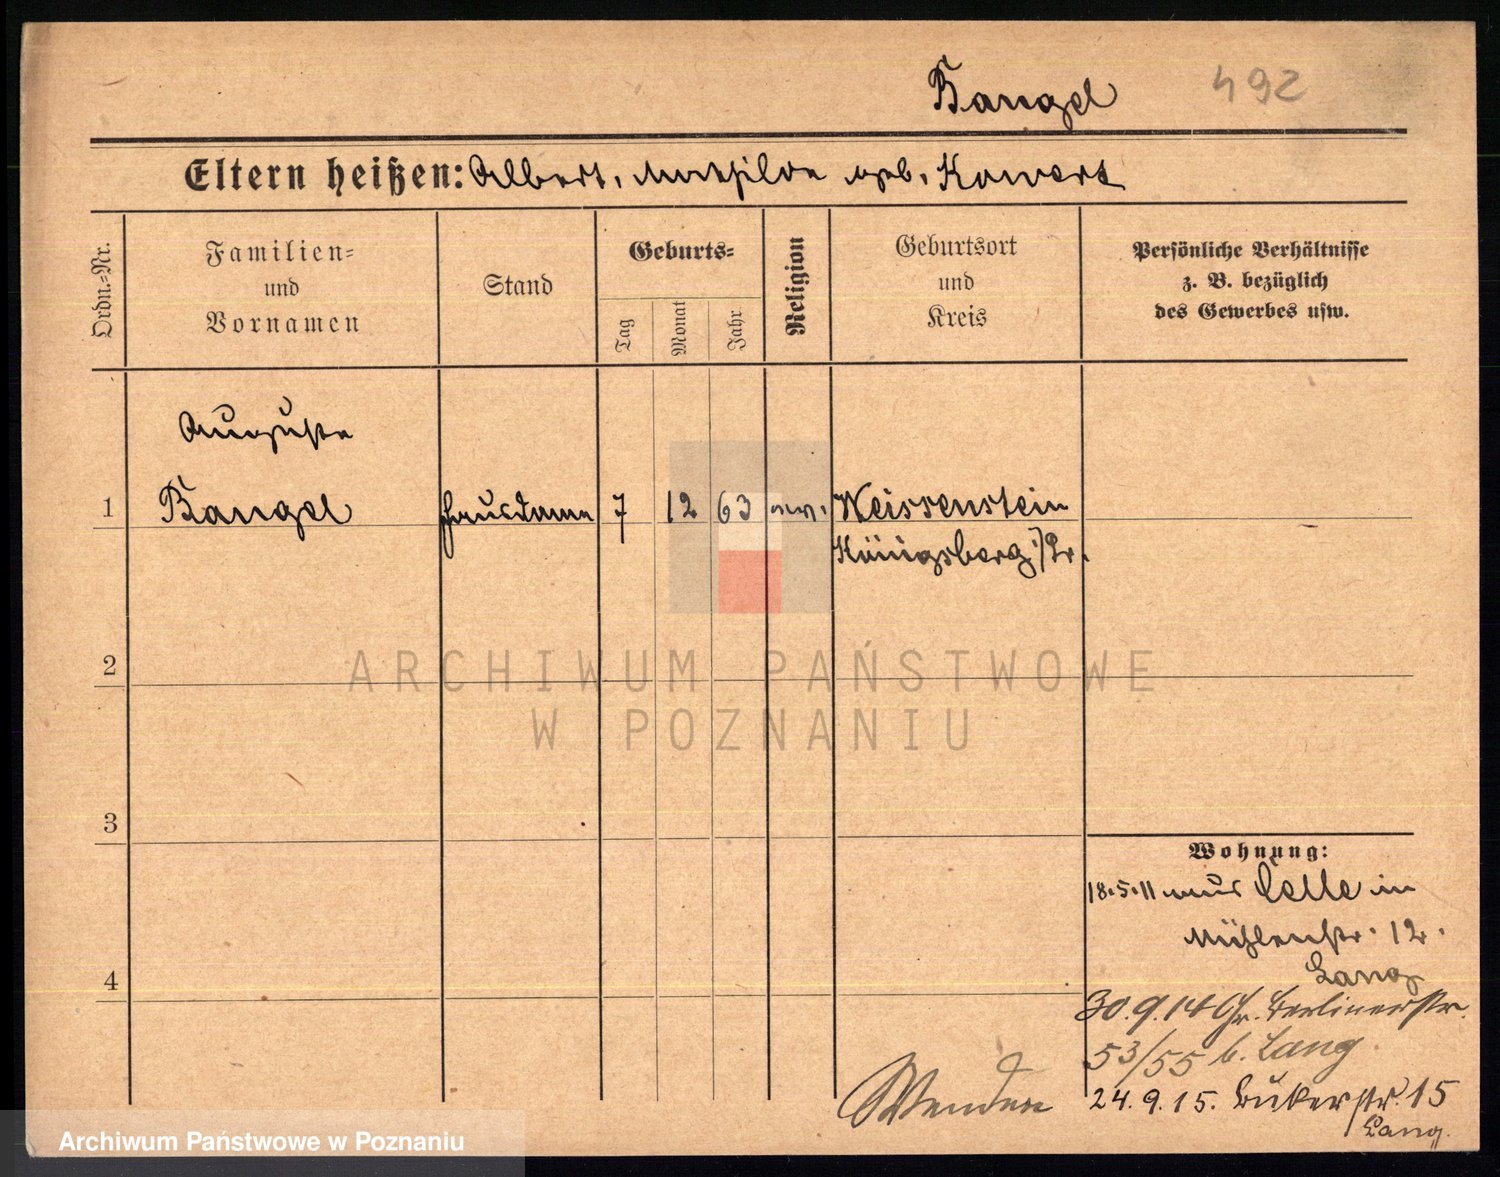 Bangel 492
Eltern heißen: Albert, Mathilde geb. Kowert
Ordn.-Nr.
Familien-
und
Vornamen
Stand
Geburts-
Tag
Monat
Jahr
Religion
Geburtsort
und
Kreis
Persönliche Verhältnisse
z. B. bezüglich
des Gewerbes usw.
Auguste
1 Bangel Hausdame 7 12 63 ev. Weissenstein
Königsberg i/Pr.
2
ARCHIWUM PAŃSTWOWE
W POZNANIU
3
4
Wohnung:
18.5.11 aus Celle in
Mühlenstr. 12.
Lang
30.9.14 Gr. Berlinerstr.
53/55 b. Lang
24.9.15. Bukerstr. 15
Lang.
Wenden
Archiwum Państwowe w Poznaniu